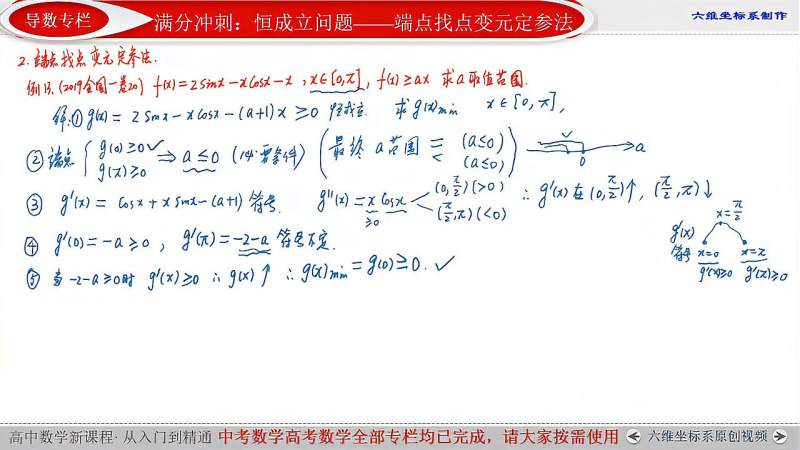 导数专栏
满分冲刺：恒成立问题——端点找点变元定参法
六维坐标系制作
2.端点找点变元定参法.
例13.(2019全国一卷20) f(x)=2sinx-xcosx-x, x∈[0,π], f(x)≥ax 求a取值范围.
解:① g(x)=2sinx-xcosx-(a+1)x≥0 恒成立. 求g(x)min x∈[0,π],
② 端点 { g(0)≥0✓ g(π)≥0 ⇒ a≤0 (必要条件) (最终a范围 = (a≤0) (a≤0)) 0 a
③ g'(x)=cosx+xsinx-(a+1) 符号. g''(x)=xcosx ≥0 (0,π/2)(>0) (π/2,π)(<0) ∴g'(x)在(0,π/2)↑, (π/2,π)↓
④ g'(0)=-a≥0, g'(π)=-2-a 符号不定.
g'(x) 符号 x=π/2 x=0 x=π g'(x)≥0 g'(π)≥0
⑤ 当-2-a≥0时 g'(x)≥0 ∴g(x)↑ ∴g(x)min=g(0)≥0.✓
高中数学新课程·从入门到精通 中考数学高考数学全部专栏均已完成，请大家按需使用 六维坐标系原创视频